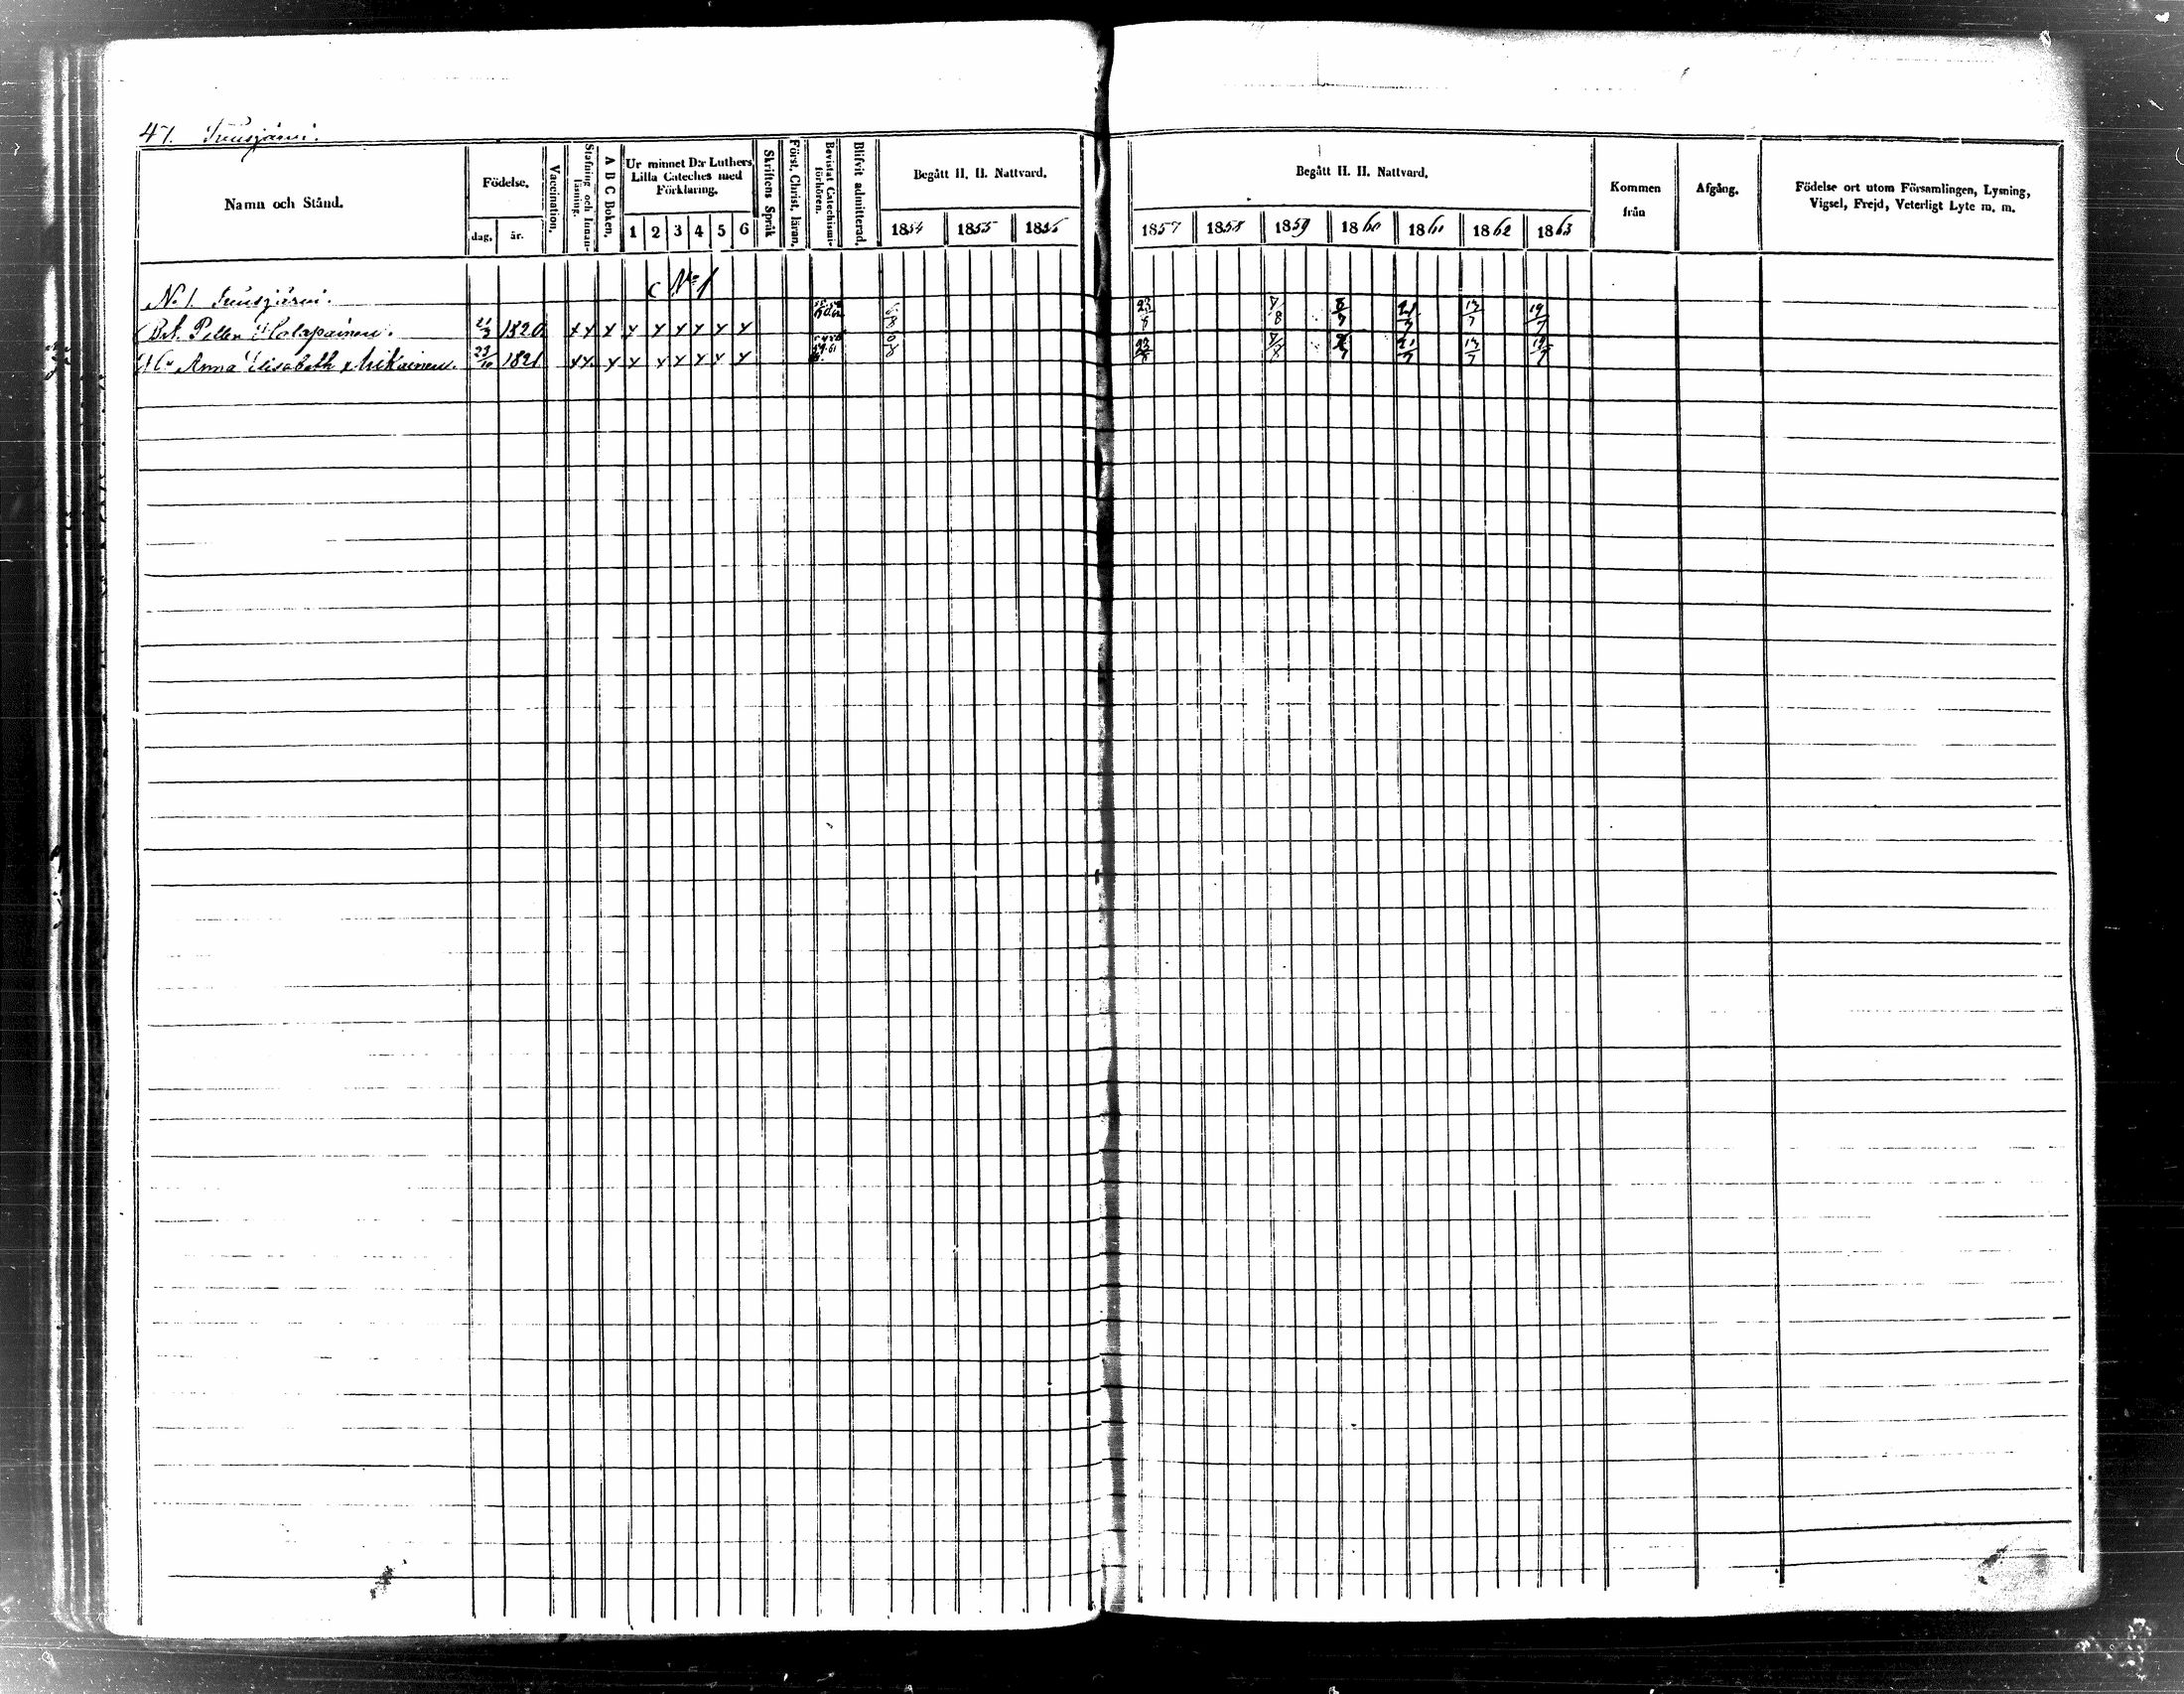 47. Suusjärvi.
Namn och Stånd.
Födelse.
dag. år.
Vaccination.
Stafning och Innan-läsning.
A B C Boken.
Ur minnet D:r Luthers Lilla Cateches med Förklaring.
1 2 3 4 5 6
Skriftens Språk
Först. Christ. läran.
Bevistat Catechismi-förhören.
Blifvit admitterad.
Begått H. H. Nattvard.
1854 1855 1856
Begått H. H. Nattvard.
1857 1858 1859 1860 1861 1862 1863
Kommen från
Afgång.
Födelse ort utom Församlingen, Lysning, Vigsel, Frejd, Veterligt Lyte m. m.
No 1. Suusjärvi. c No 1
Petter Holapainen. 1820
Anna Elisabeth Mikainen. 23/10 1821
23/8 7/8 21/7 13/7 19/7
23/8 7/8 21/7 13/7 19/7